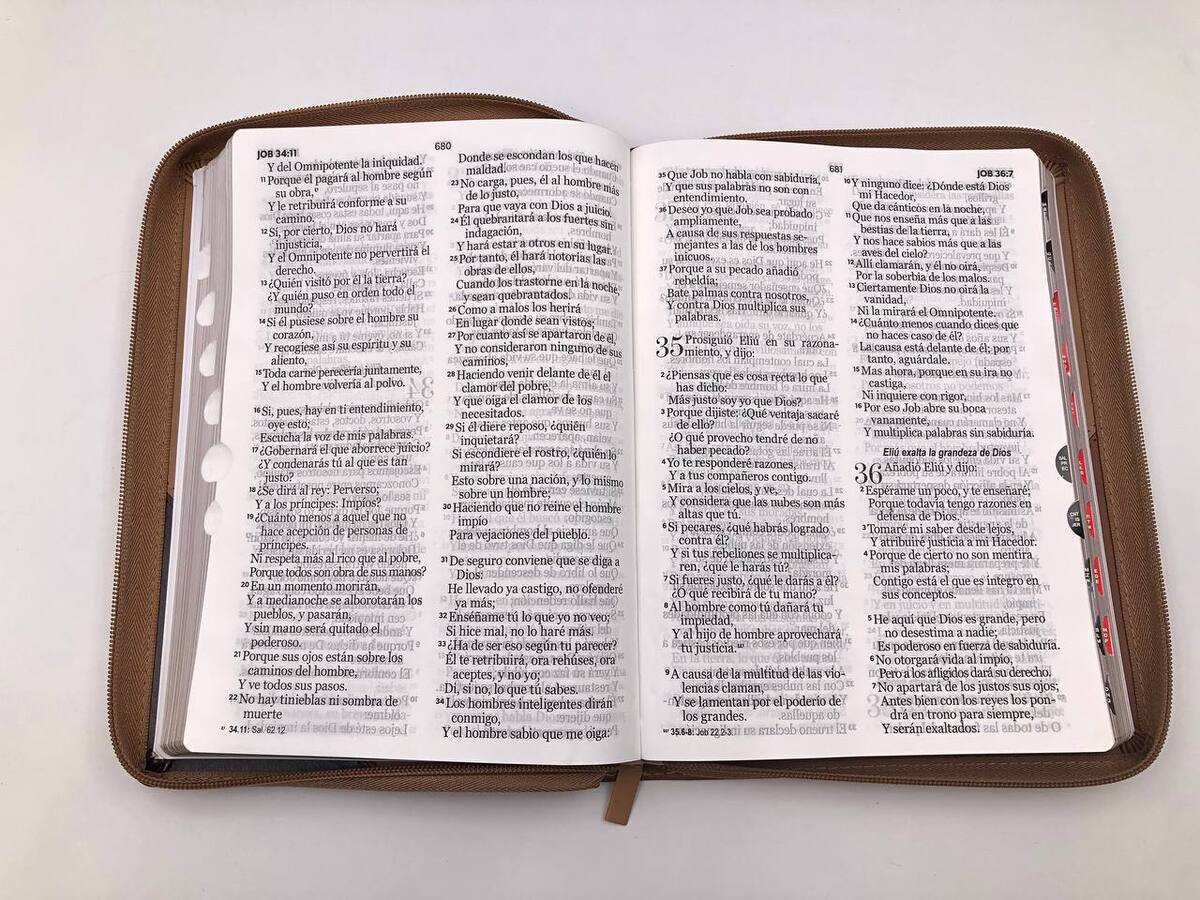 JOB 34:11
680
Y del Omnipotente la iniquidad.
11 Porque él pagará al hombre según
su obra,
Y le retribuirá conforme a su
camino.
12 Sí, por cierto, Dios no hará
injusticia,
Y el Omnipotente no pervertirá el
derecho.
13 ¿Quién visitó por él la tierra?
¿Y quién puso en orden todo el
mundo?
14 Si él pusiese sobre el hombre su
corazón,
Y recogiese así su espíritu y su
aliento,
15 Toda carne perecería juntamente,
Y el hombre volvería al polvo.
16 Si, pues, hay en ti entendimiento,
oye esto;
Escucha la voz de mis palabras.
17 ¿Gobernará el que aborrece juicio?
¿Y condenarás tú al que es tan
justo?
18 ¿Se dirá al rey: Perverso;
Y a los príncipes: Impíos?
19 ¿Cuánto menos a aquel que no
hace acepción de personas de
príncipes,
Ni respeta más al rico que al pobre,
Porque todos son obra de sus manos?
20 En un momento morirán,
Y a medianoche se alborotarán los
pueblos, y pasarán,
Y sin mano será quitado el
poderoso.
21 Porque sus ojos están sobre los
caminos del hombre,
Y ve todos sus pasos.
22 No hay tinieblas ni sombra de
muerte
34.11: Sal. 62.12
Donde se escondan los que hacen
maldad.
23 No carga, pues, él al hombre más
de lo justo,
Para que vaya con Dios a juicio.
24 Él quebrantará a los fuertes sin
indagación,
Y hará estar a otros en su lugar.
25 Por tanto, él hará notorias las
obras de ellos,
Cuando los trastorne en la noche,
y sean quebrantados.
26 Como a malos los herirá
En lugar donde sean vistos;
27 Por cuanto así se apartaron de él,
Y no consideraron ninguno de sus
caminos,
28 Haciendo venir delante de él el
clamor del pobre,
Y que oiga el clamor de los
necesitados.
29 Si él diere reposo, ¿quién
inquietará?
Si escondiere el rostro, ¿quién lo
mirará?
Esto sobre una nación, y lo mismo
sobre un hombre;
30 Haciendo que no reine el hombre
impío
Para vejaciones del pueblo.
31 De seguro conviene que se diga a
Dios:
He llevado ya castigo, no ofenderé
ya más;
32 Enséñame tú lo que yo no veo;
Si hice mal, no lo haré más.
33 ¿Ha de ser eso según tu parecer?
Él te retribuirá, ora rehúses, ora
aceptes, y no yo;
Di, si no, lo que tú sabes.
34 Los hombres inteligentes dirán
conmigo,
Y el hombre sabio que me oiga:
681
JOB 36:7
35 Que Job no habla con sabiduría,
Y que sus palabras no son con
entendimiento.
36 Deseo yo que Job sea probado
ampliamente,
A causa de sus respuestas se-
mejantes a las de los hombres
inicuos.
37 Porque a su pecado añadió
rebeldía;
Bate palmas contra nosotros,
Y contra Dios multiplica sus
palabras.
35 Prosiguió Eliú en su razona-
miento, y dijo:
2 ¿Piensas que es cosa recta lo que
has dicho:
Más justo soy yo que Dios?
3 Porque dijiste: ¿Qué ventaja sacaré
de ello?
¿O qué provecho tendré de no
haber pecado?
4 Yo te responderé razones,
Y a tus compañeros contigo.
5 Mira a los cielos, y ve,
Y considera que las nubes son más
altas que tú.
6 Si pecares, ¿qué habrás logrado
contra él?
Y si tus rebeliones se multiplica-
ren, ¿qué le harás tú?
7 Si fueres justo, ¿qué le darás a él?
¿O qué recibirá de tu mano?
8 Al hombre como tú dañará tu
impiedad,
Y al hijo de hombre aprovechará
tu justicia.
9 A causa de la multitud de las vio-
lencias claman,
Y se lamentan por el poderío de
los grandes.
35.6-8: Job 22.2-3.
10 Y ninguno dice: ¿Dónde está Dios
mi Hacedor,
Que da cánticos en la noche,
11 Que nos enseña más que a las
bestias de la tierra,
Y nos hace sabios más que a las
aves del cielo?
12 Allí clamarán, y él no oirá,
Por la soberbia de los malos.
13 Ciertamente Dios no oirá la
vanidad,
Ni la mirará el Omnipotente.
14 ¿Cuánto menos cuando dices que
no haces caso de él?
La causa está delante de él; por
tanto, aguárdale.
15 Mas ahora, porque en su ira no
castiga,
Ni inquiere con rigor,
16 Por eso Job abre su boca
vanamente,
Y multiplica palabras sin sabiduría.
Eliú exalta la grandeza de Dios
36 Añadió Eliú y dijo:
2 Espérame un poco, y te enseñaré;
Porque todavía tengo razones en
defensa de Dios.
3 Tomaré mi saber desde lejos,
Y atribuiré justicia a mi Hacedor.
4 Porque de cierto no son mentira
mis palabras;
Contigo está el que es íntegro en
sus conceptos.
5 He aquí que Dios es grande, pero
no desestima a nadie;
Es poderoso en fuerza de sabiduría.
6 No otorgará vida al impío,
Pero a los afligidos dará su derecho.
7 No apartará de los justos sus ojos;
Antes bien con los reyes los pon-
drá en trono para siempre,
Y serán exaltados.